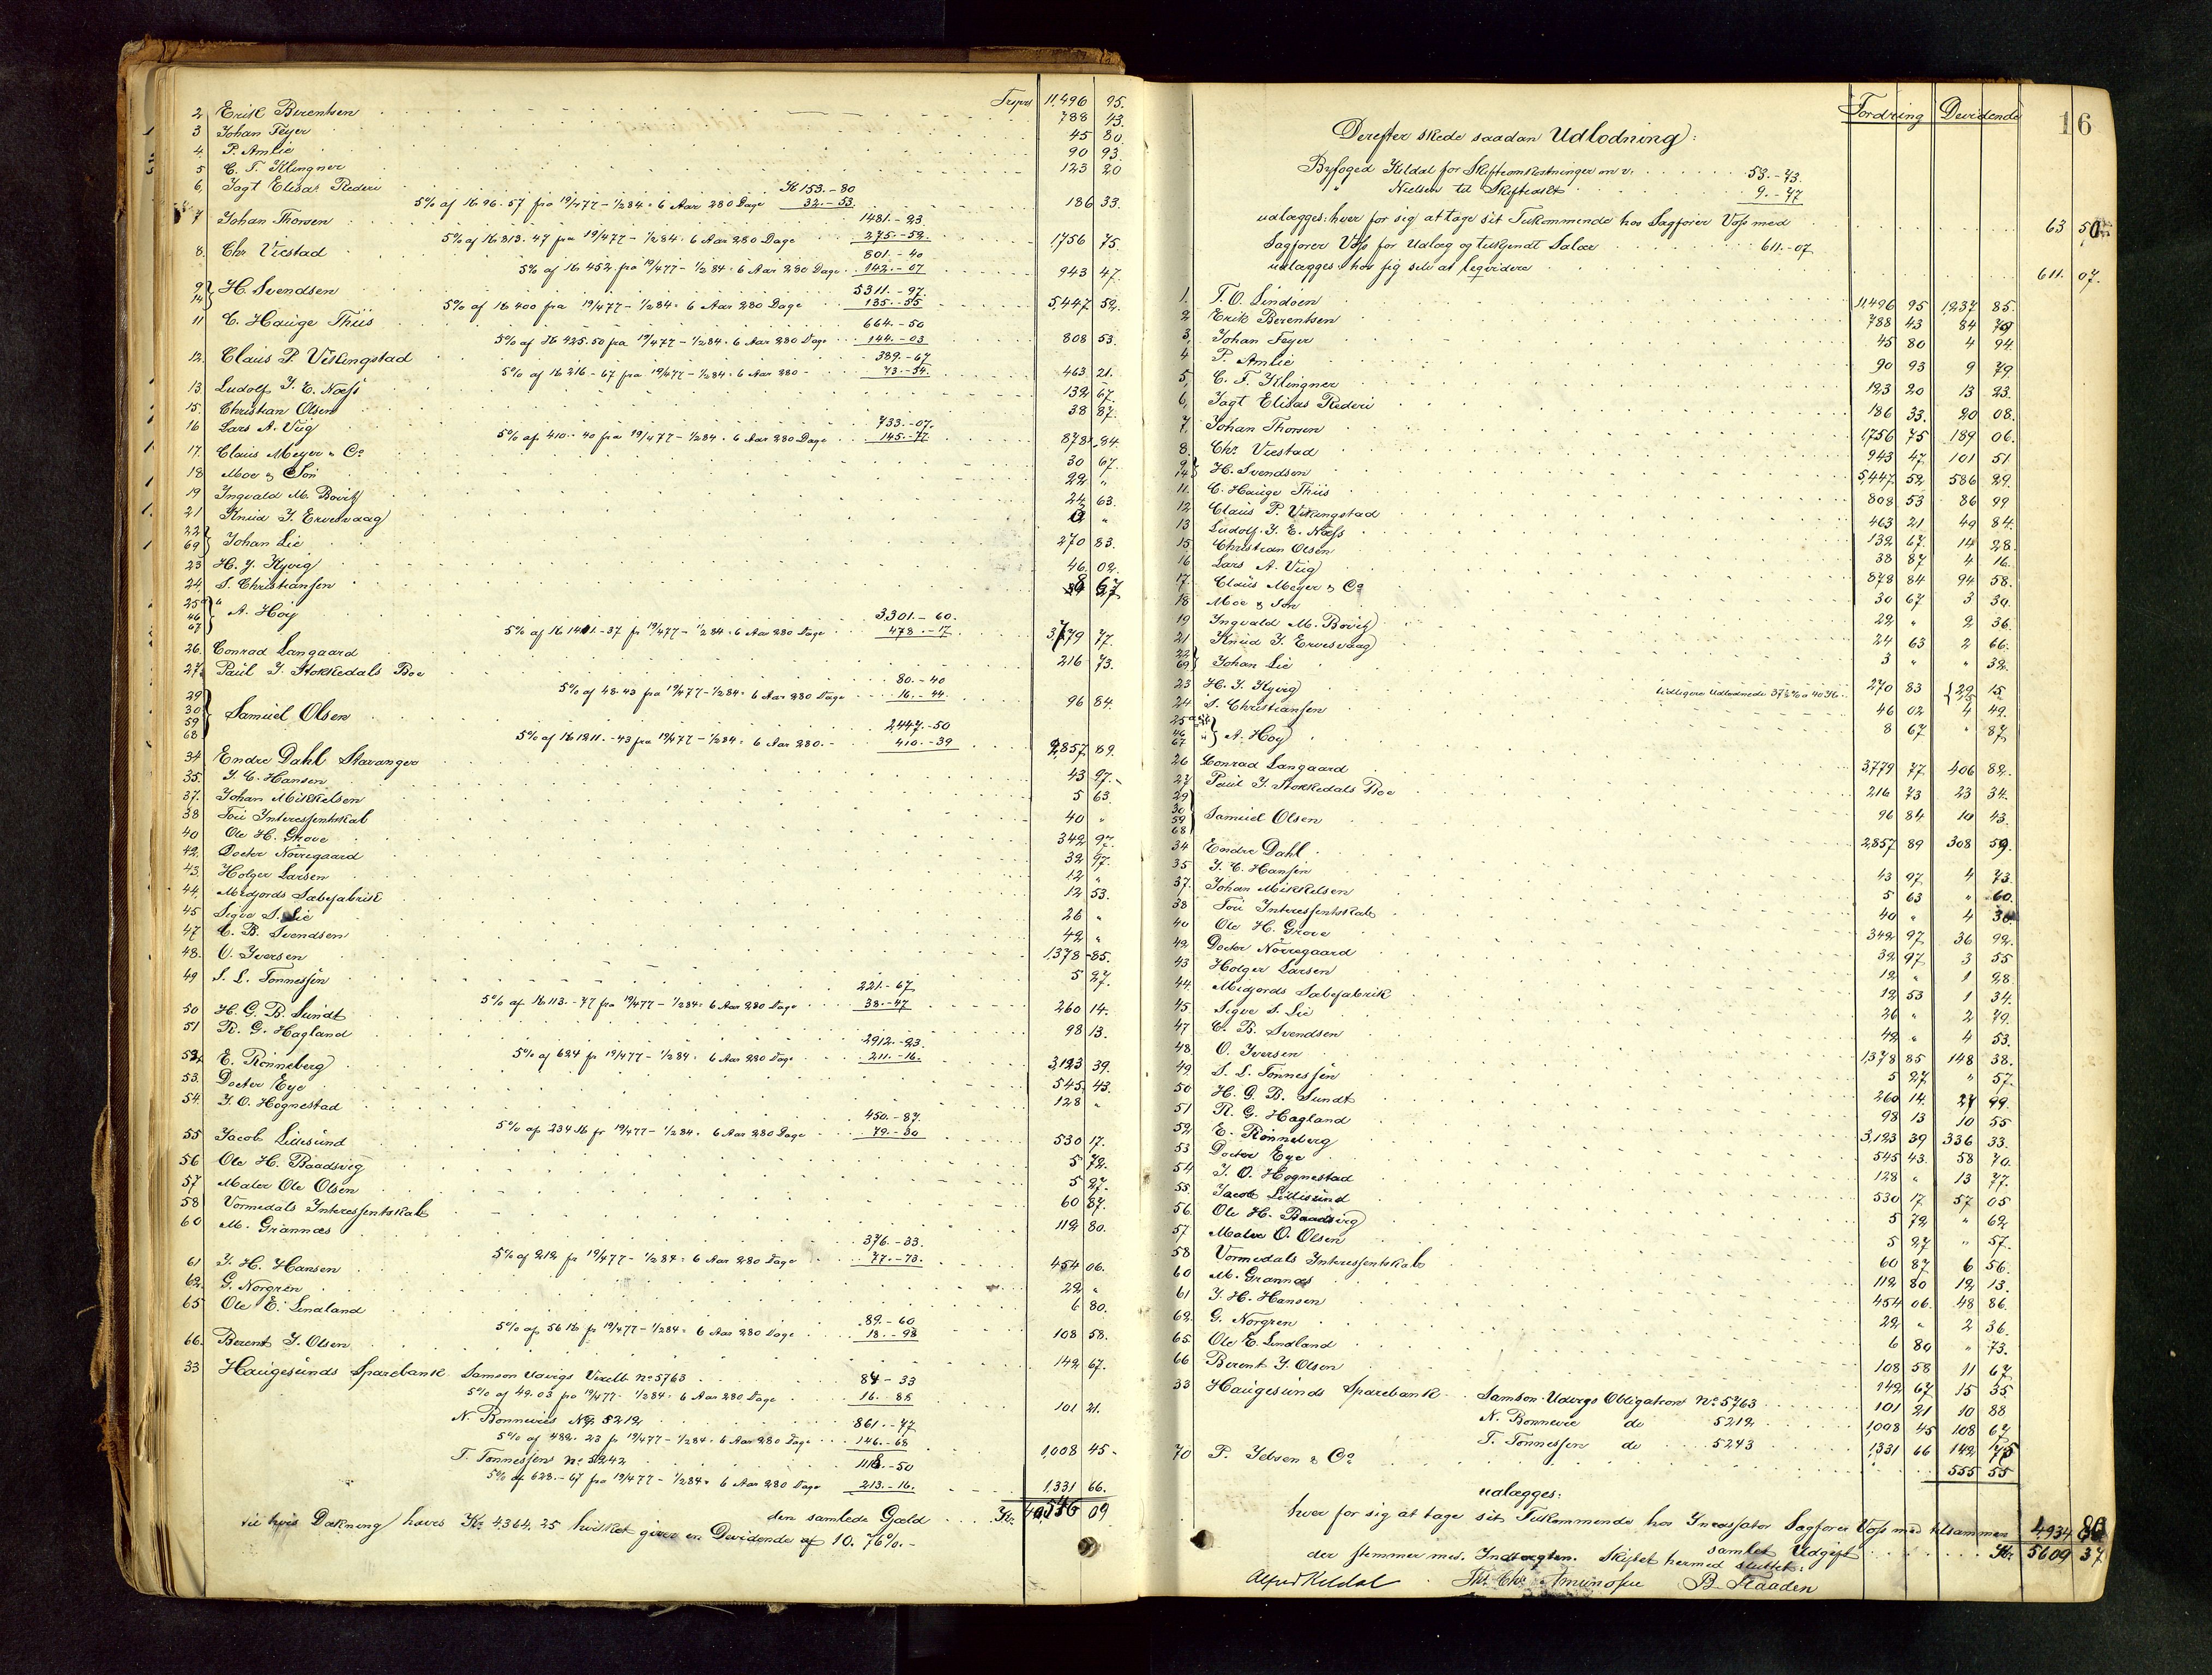 Trspt 11,496 95.
2 Erik Berentsen 788 43.
3 Johan Feyer 45 80.
4 P. Amlie 90 93.
5 C. F. Klingner 123 20
6, Jagt Elisas Rederi K 153.-80
5% af K 96.57 fra 19/4 77 - 1/2 84 = 6 Aar 280 Dage 32.-53. 186 33.
7 Johan Thorsen 1481.-23
5% af K 813.47 fra 19/4 77 - 1/2 84 = 6 Aar 280 Dage 275.-52. 1,756 75.
8. Chr. Viestad 801.-40
5% af K 452. fra 19/4 77 - 1/2 84 = 6 Aar 280 Dage 142.-07 943 47.
9 14 } H. Svendsen 5311.-97.
5% af K 400 fra 19/4 77 - 1/2 84 = 6 Aar 280 Dage 135.-55 5,447 52.
11 C. Hauge Thiis 664.-50
5% af K 425.50 fra 19/4 77 - 1/2 84 = 6 Aar 280 Dage 144.-03 808 53.
12. Claus P. Vikingstad 389.-67
5% af K 216-67 fra 19/4 77 - 1/2 84 = 6 Aar 280 - 73.-54. 463 21.
13. Ludolf J. E. Næss 132 67.
15. Christian Olsen 38 87.
16 Lars A. Viig 733.-07.
5% af 410.-40 fra 19/4 77 - 1/2 84 = 6 Aar 280 Dage 145.-77 878 84.
17. Claus Meyer & Co 30 67.
18 Moe & Søn 22 "
19 Ingvald M. Bovitz 24 63.
21 Knud J. Ervesvaag 3 "
22 69 } Johan Lie 270 83.
23 H. J. Kyvig 46. 02.
24, S. Christiansen 8 67
25 46 67 } A. Høy 3,301.-60.
5% af K 1401.-37 fr 19/4 77 - 1/2 84 = 6 Aar 280 Dage 478.-17 3,779 77.
26. Conrad Langaard 216 73.
27. Paul J. Stokkedals Boe 80.-40
5% af 48.43 fra 19/4 77 - 1/2 84 = 6 Aar 280 Dage 16.-44. 96 84.
29 30 59 68 } Samuel Olsen 2,447.-50
5% af K 1211.-43 fra 19/4 77 - 1/2 84 = 6 Aar 280.- 410.-39 2,857 89.
34 Endre Dahl Stavanger 43 97.-
35. J. C. Hansen 5 63.
37. Johan Mikkelsen 40 "
38 Foii Interessentskab 342 97.
40 Ole H. Grove 32 97.
42. Doctor Nørregaard 12 "
43. Holger Larsen 12 53.
44, Midfjords Sæbefabrik 26 "
45 Sigve S. Lie 42 "
47 C. B. Svendsen 1,378 85.
48. O. Iversen 5 27.
49 S. L. Tønnessen 221.-67
5% af K 113.-77 fra 19/4 77 - 1/2 84 = 6 Aar 280 Dage 38.-47 260 14.
50 H. G. B. Sundt 98 13.
51 R. G. Hagland 2912.-23.
5% af 624 fr 19/4 77 - 1/2 84 = 6 Aar 280 Dage 211.-16. 3,123 39.
52. E. Rønneberg 545 43.
53. Doctor Eye 128 "
54. J. O. Hognestad 450.-87.
5% af 234 K fr 19/4 77 - 1/2 84 = 6 Aar 280 Dage 79.-30 530 17.
55 Jacob Lillesund 5 72.
56 Ole H. Baadsvig 5 27.
57 Maler Ole Olsen 60 87.
58 Vormedals Interessentskab 112 80.
60 M. Grannæs 376.-33.
5% af 212 fr 19/4 77 - 1/2 84 = 6 Aar 280 Dage 77.-73. 454 06.
61 J. H. Hansen 22 "
62. G. Norgren 6 80.
65 Ole E. Lindland 89.-60
5% af 56 K fr 19/4 77 - 1/2 84 = 6 Aar 280 Dage 18.-98 108 58.
66. Berent J. Olsen 142 67.
33 Haugesunds Sparebank Samson Udvigs Vexelb. No 5763 84-33
5% af 49.03 fra 19/4 77 - 1/2 84 = 6 Aar 280 Dage 16.-88 101 21.
N. Bonnevies No 5212 861.-77
5% af 482.23 fr 19/4 77 - 1/2 84 = 6 Aar 280 Dage 146.-68 1,008 45-
T. Tønnessens No 5242 1118.-50
5% af 628.-67 fra 19/4 77 - 1/2 84 = 6 Aar 280 Dage 213.-16. 1,331 66.
den samlede Gjæld Kr. 40,546 09
til hvis Dækning haves Kr. 4,364.25 hvilket giver en Devidende af 10.76%.-
Fordring Devidende 16
Derefter skede saadan Udlodning:
Byfoged Kildal for Skifteomkostninger m v. 53.-73.
" Nielsen til Skifteafst 9.-77
udlægges: hver for sig at tage sit Tilkommende hos Sagfører Voss med 63 50
Sagfører Voss for Udlæg og tilkjendt Salær 611.-07
udlægges hos sig selv at liqvidere 611. 07.
1. T. O. Lindøen 11496 95 1,237 85.
2 Erik Berentsen 788 43 84 79
3, Johan Feyer 45 80 4 94.
4 P. Amlie 90 93 9 79.
5, C. F. Klingner 123 20 13 23.
6, Jagt Elisas Rederi 186 33. 20 08.
7, Johan Thorsen 1,756 75 189 06.
8. Chr. Viestad 943 47 101 51.
9 14 } H. Svendsen 5,447 52 586 29.
11. C. Hauge Thiis 808 53 86 99
12 Claus P. Vikingstad 463 21 49 84.
13 Ludolf J. E. Næss 132 67. 14 28.
15 Christian Olsen 38 87 4 16.
16 Lars A. Viig 878 84 94 58.
17. Claus Meyer & Co 30 67 3 30.
18 Moe & Søn 22 " 2 36.
19 Ingvald M. Bovitz 24 63 2 66.
21 Knud J. Ervesvaag 3 " " 32.
22 69 } Johan Lie tidligere Udlodnede 37½% a 40 K 270 83 { 29 15
23 H. J. Kyvig 46 02 4 49.
24 S. Christiansen 8 67 " 87.
25 46 67 } A. Høy 3,779 77. 406 82.
26 Conrad Langaard 216 73 23 34.
27 Paul J. Stokkedals Boe 96 84 10 43.
29 30 59 68 } Samuel Olsen 2,857 89 308 59.
34 Endre Dahl 43 97 4 73.
35 J. C. Hansen 5 63 " 60.
37. Johan Mikkelsen 40 " 4 30
38 Foii Interessentskab 342 97 36 92.
40 Ole H. Grove 32 97 3 55
42 Doctor Nørregaard 12 " 1 28.
43 Holger Larsen 12 53 1 34.
44. Midfjords Sæbefabrik 26 " 2 79.
45. Sigve S. Lie 42 " 4 53.
47 C. B. Svendsen 1,378 85 148 38.
48. O. Iversen 5 27 " 57.
49. S. L. Tønnessen 260 14. 27 99.
50 H. G. B. Sundt 98 13 10 55
51 R. G. Hagland 3,123 39 336 33.
52 E. Rønneberg 545 43. 58 70.
53 Doctor Eye 128 " 13 77.
54 J. O. Hognestad 530 17. 57 05
55. Jacob Lillesund 5 72 " 62
56. Ole H. Baadsvig 5 27 " 57.
57 Maler O. Olsen 60 87 6 56.
58 Vormedals Interessentskab 112 80 12 13.
60 M. Grannæs 454 06. 48 86.
61 J. H. Hansen 22 " 2 36.
62. G. Norgren 6 80 " 73.
65 Ole E. Lindland 108 58 11 67
66 Berent J. Olsen 142 67 15 35
33 Haugesunds Sparebank Samson Udvigs Obligation No 5763 101 21 10 88
N. Bonnevie do 5212 1,008 45 108 67
T. Tønnessen do 5243 1,331 66 142 75
70 P. Jebsen & Co 555 55
udlægges:
hver for sig at tage sit Tilkommende hos Incassator Sagfører Voss med tilsammen 4,934 80
samlet Udgift Kr. 5609 37
der stemmer med Indtægten. Skiftet hermed sluttet.
Alfred Kildal Th. Chr. Amundsen B. Staaden